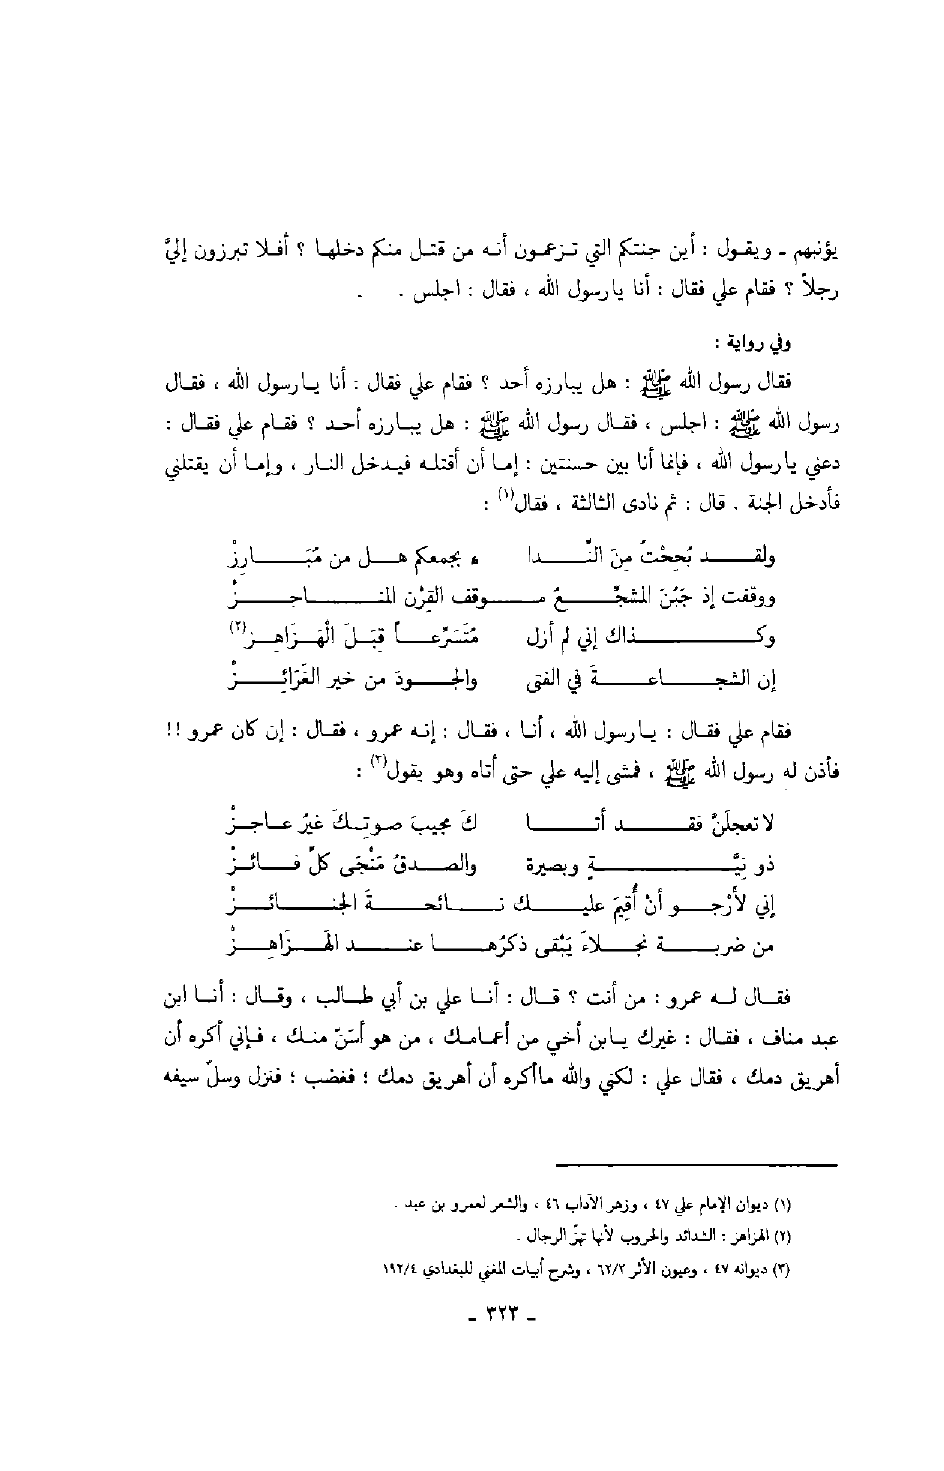 يؤنبهم - ويقول : أين جنتكم التي تزعمون أنه من قتل منكم دخلها ؟ أفلا تبرزون إليَّ
رجلاً ؟ فقام علي فقال : أنا يا رسول الله ، فقال : اجلس .
وفي رواية :
فقال رسول الله ﷺ : هل يبارزه أحد ؟ فقام علي فقال : أنا يا رسول الله ، فقال
رسول الله ﷺ : اجلس ، فقال رسول الله ﷺ : هل يبارزه أحد ؟ فقام علي فقال :
دعني يا رسول الله ، فإنما أنا بين حسنتين : إما أن أقتله فيدخل النار ، وإما أن يقتلني
فأدخل الجنة . قال : ثم نادى الثالثة ، فقال(١) :
ولقد بُححْتُ مِنَ النِّدا ء بجمعكم هل من مُبَارِزْ
ووقفت إذ جَبُنَ المشجَّعُ موقف القِرْنِ المناجِزْ
وكذاك إني لم أزل مُتَسَرِّعاً قِبَلَ الْهَزَاهِزْ(٢)
إن الشجاعةَ في الفتى والجودَ من خير الغَرَائِزْ
فقام علي فقال : يا رسول الله ، أنا ، فقال : إنه عمرو ، فقال : إن كان عمرو !!
فأذن له رسول الله ﷺ ، فمشى إليه علي حتى أتاه وهو يقول(٣) :
لا تعجلَنْ فقد أتا كَ مجيبَ صوتِكَ غيرُ عاجزْ
ذو نيَّةٍ وبصيرة والصدقُ مَنْجَى كلِّ فائزْ
إني لأرْجو أنْ أُقِيمَ عليك نائحةَ الجنائزْ
من ضربة نجلاءَ يَبْقى ذكرُها عند الهَزاهِزْ
فقال له عمرو : من أنت ؟ قال : أنا علي بن أبي طالب ، وقال : أنا ابن
عبد مناف ، فقال : غيرك يا بن أخي من أعمامك ، من هو أسَنّ منك ، فإني أكره أن
أهريق دمك ، فقال علي : لكني والله ما أكره أن أهريق دمك ؛ فغضب ؛ فنزل وسلّ سيفه
(١) ديوان الإمام علي ٤٧ ، وزهر الآداب ٤٦ ، والشعر لعمرو بن عبد .
(٢) الهزاهز : الشدائد والحروب لأنها تهزّ الرجال .
(٣) ديوانه ٤٧ ، وعيون الأثر ٦٢/٢ ، وشرح أبيات المغني للبغدادي ١٩٢/٤
- ٣٢٣ -